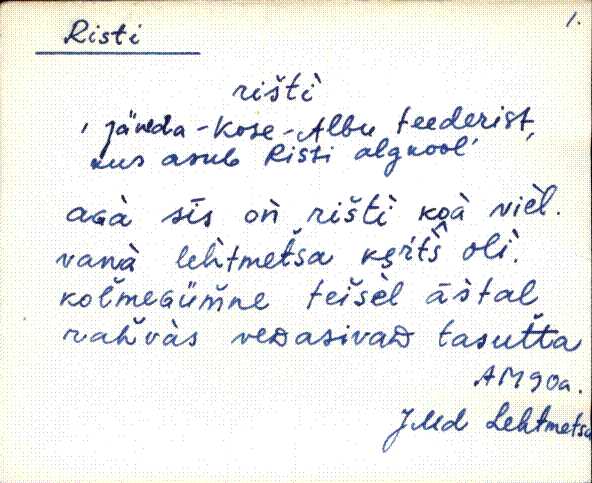 1.
Risti
rištì̬
, Jäneda-Kose-Albu teederist,
kus asub Risti algkool'
aɢà sīs oǹ rištì koà vièl.
vanà lehtmetsa kęrìtš olì.
kolmeɢümne teisèl āstal
rahvàs veᴅasivaᴅ tasutta
AM 90a.
JMd Lehtmetsa